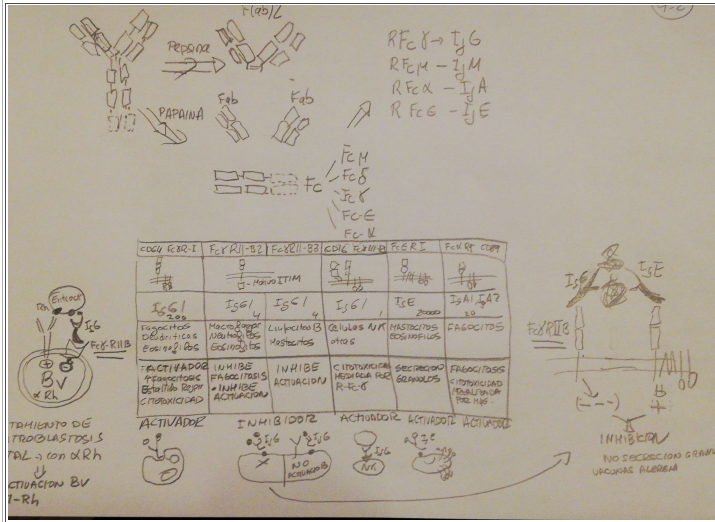 F(ab)2
Pepsina
PAPAINA
Fab
Fab
RFcγ → IgG
RFcμ - IgM
RFcα - IgA
RFcε - IgE
Fc
Fcμ
Fcδ
Fcγ
Fc-ε
Fc-α
CD64 FcγR-I
FcγRII-B2
FcγRII-B3
CD16 FcγRIII-B
FcεRI
FcαRI CD89
MotivoITIM
IgG1
200
IgG1
4
IgG1
4
IgG1
1
IgE
20000
IgA1 IgA2
10
Fagocitos
Dendriticas
Eosinofilos
Macrofagos
Neutrofilos
Eosinofilos
Linfocitos B
Mastocitos
Celulos NK
otras
MASTOCITOS
EOSINOFILOS
FAGOCITOS
↑ACTIVADOR
↑FAGOCITOSIS
Estallido Respir
CITOTOXICIDAD
INHIBE
FAGOCITOSIS
• INHIBE
ACTIVACION
INHIBE
ACTIVACION
CITOTOXICIDAD
MEDIADA POR
SECRECION
GRANULOS
FAGOCITOSIS
CITOTOXICIDAD
ACTIVADOR
INHIBIDOR
ACTIVADOR
ACTIVADOR
ACTIVADOR
IgG
X
IgG
NO
ACTIVACION B
IgG
NK
IgE
Eritroct
Rh
IgG
FcγRIIB
+
BV
αRh
TAMIENTO DE
ITROBLASTOSIS
TAL → con αRh
CTIVACION BV
I-Rh
IgG
IgE
FcγRIIB
(---)
+
INHIBICION
NO SECRECION GRAN
VACUNAS ALERGIA